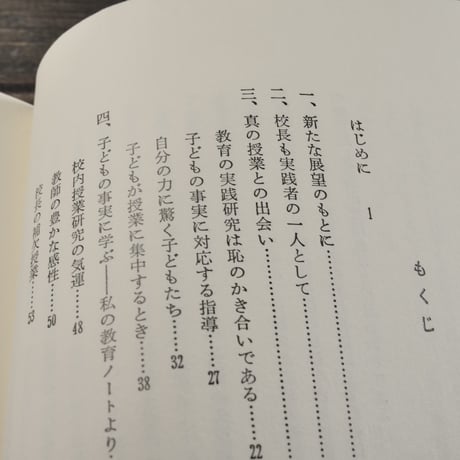 もくじ
はじめに 1
一、新たな展望のもとに……
二、校長も実践者の一人として……
三、真の授業との出会い……
教育の実践研究は恥のかき合いである……22
子どもの事実に対応する指導……27
自分の力に驚く子どもたち……32
子どもが授業に集中するとき……38
四、子どもの事実に学ぶ——私の教育ノートより……
校内授業研究の気運……48
教師の豊かな感性……50
校長の補欠授業……53